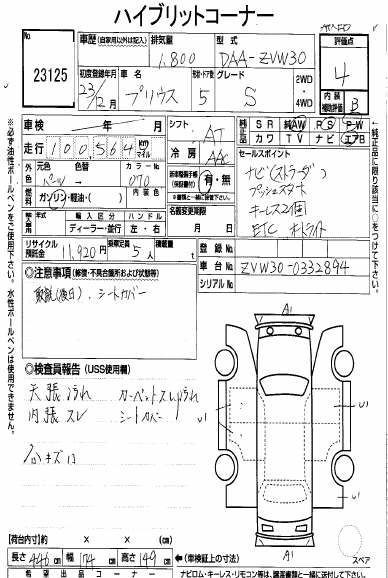 ハイブリットコーナー
No.
23125
車歴 (自家用以外は記入)
排気量
型式
1.800
DAA-ZVW30
評価点
4
内装
補助評価
B
初度登録年月
車名
形状・ドア数
グレード
2WD
4WD
23/12月
プリウス
5
S
車検
年
月
走行
100,564
km
マイル
シフト
AT
冷房
AAC
純正品
SR
AW
PS
PW
カワ
TV
ナビ
エアB
外色
元色
色替
カラーNo.
070
燃料
ガソリン・軽油・( )
内装色
新車整備手帳
(保証書付)
有・無
名義変更期限
月
日
車歴
年
輸入区分
ハンドル
ディーラー・並行
左・右
リサイクル
預託金
11,920円
乗車定員
5人
積載量
セールスポイント
ナビ(ストラーダ)
プッシュスタート
キーレス2個
ETC
登録No.
車台No.
ZVW30-0332894
シリアルNo.
◎注意事項 (修復・不具合箇所および状態等)
取説(後日)、シートカバー
◎検査員報告 (USS使用欄)
天張汚れ
カーペットスレ汚れ
内張スレ
シートカバー
フロントキズ
A1
A1
スペア
[荷台内寸]
× × (cm)
長さ 446cm
幅 174cm
高さ 149cm
(車検証上の寸法)
希望出品コーナー
ナビロム・キーレス・リモコン等は、譲渡書類と一緒に送付して下さい。
※必ず油性ボールペンをご使用下さい。水性ボールペンは使用できません。